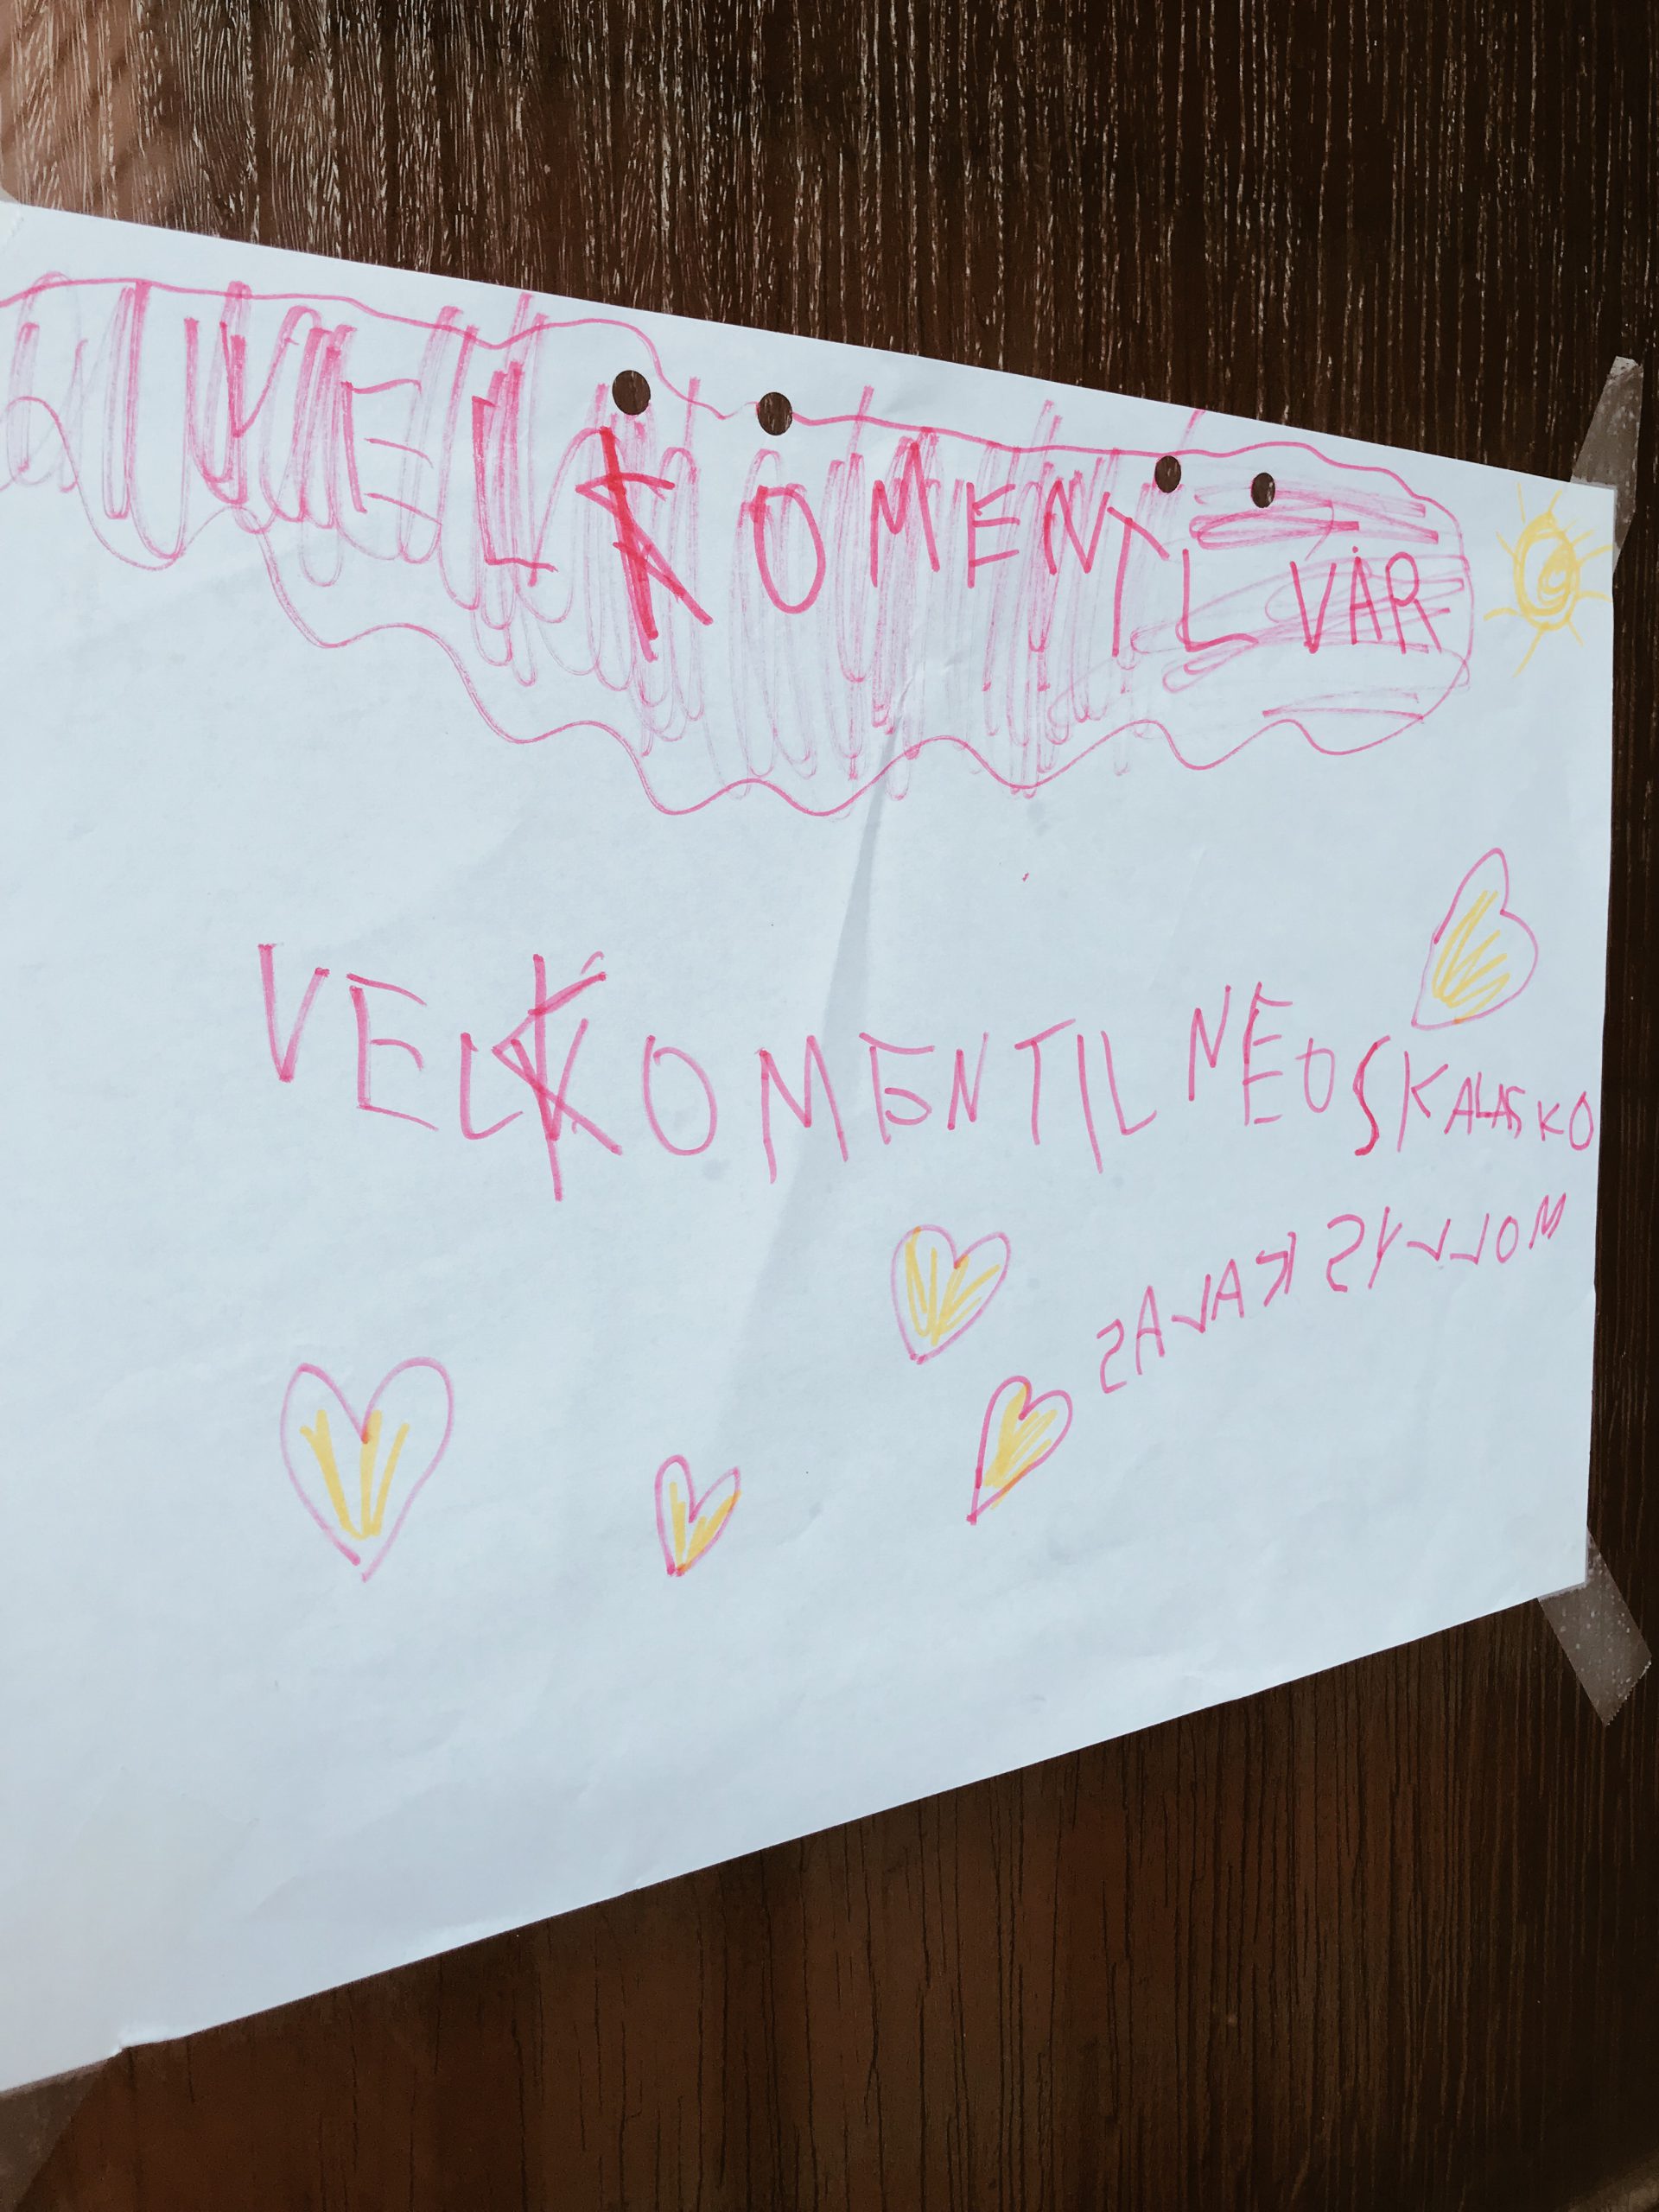 VELKOMENTL VÅR
VELKOMENTIL NEOSKALASKO
MOLLYS KALAS